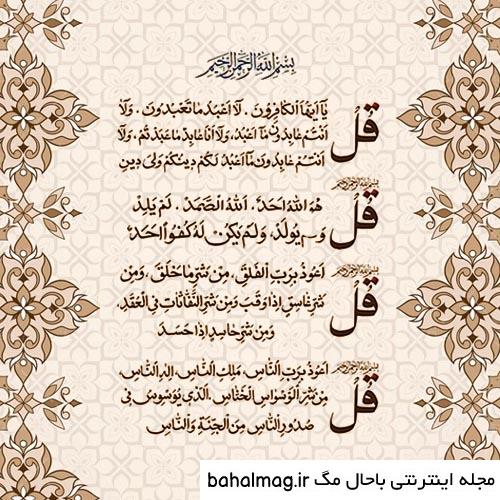 بسم الله الرحمن الرحیم
قل
یا ایها الکافرون . لا اعبد ما تعبدون . ولا
انتم عابدون ما اعبد، ولا انا عابد ما عبدتم، ولا
انتم عابدون ما اعبد لکم دینکم ولی دین
بسم الله الرحمن الرحیم
قل
هو الله احد . الله الصمد . لم یلد
ولم یولد، ولم یکن له کفوا احد
بسم الله الرحمن الرحیم
قل
اعوذ برب الفلق، من شر ما خلق، ومن
شر غاسق اذا وقب ومن شر النفاثات فی العقد،
ومن شر حاسد اذا حسد
بسم الله الرحمن الرحیم
قل
اعوذ برب الناس، ملک الناس، اله الناس،
من شر الوسواس الخناس، الذی یوسوس فی
صدور الناس من الجنة والناس
مجله اینترنتی باحال مگ bahalmag.ir